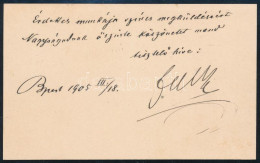 Érdekes munkája szíves megküldéséért
Nagyságodnak őszinte köszönetet mond
tisztelő híve:
Bpest 1905 III/18.